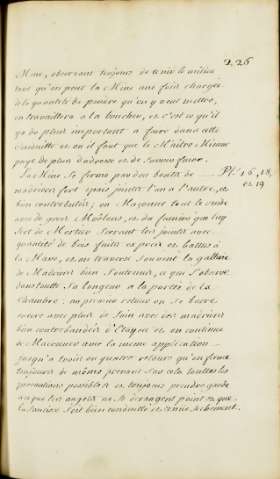 226
Mine, observant toujours de tenir le milieu
tant qu'on peut la Mine une fois chargée
de la quantité de poudre qu'on y veut mettre,
on travaillera a la boucher, et c'est ce qu'il
y a de plus important a faire dans cette
conduitte et ou il faut que le Maître Mineur
paye de plus d'adresse et de savoir faire.
La Mine se ferme par des bouts de
Pl. 16, 18,
et 19
madriers fort épais joints l'un a l'autre, et
bien contrebutés, on Maçonne tout le vuide
avec de gros Moëlons, et du fumier qui luy
sert de Mortier serrant les joints avec
quantité de bois faits exprès et battus a
la Masse, et en travers souvent la gallerie
de Madriers bien soutenus, ce qui s'observe
dans toutte sa longueur a la portée de la
Chambre: au premier retour on se barre
encore avec plus de soin avec des madriers
bien contrebandés d'Etayes et on continue
de Maçonner avec la même application
jusqu'a trois ou quatre retours qu'on ferme
toujours de même prenant sur cela touttes les
précautions possibles et toujours prendre garde
a ce que les augets ne se dérangent point et que
la saucisse soit bien conduitte et tenüe sechement.